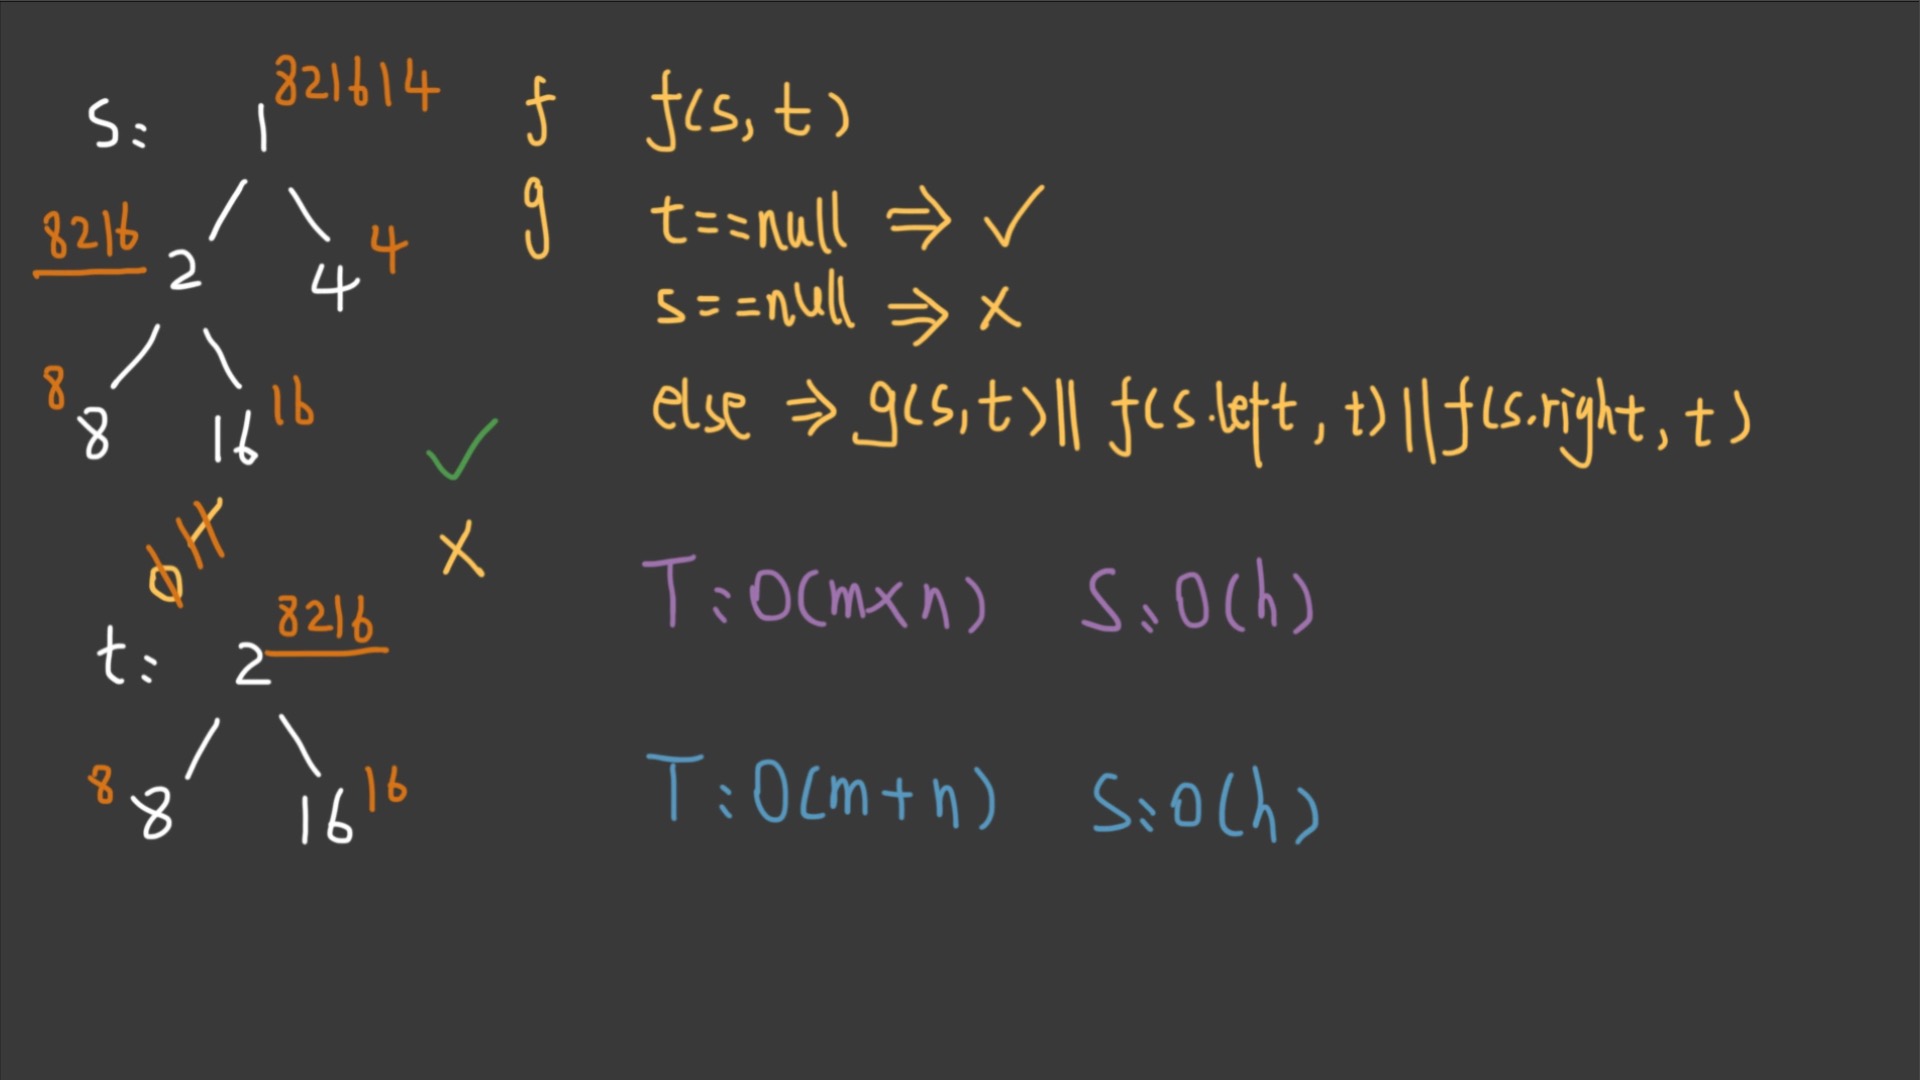 s: 1 821614
8216 2 4 4
8 8 16 16
t: 2 8216
8 8 16 16
f
g
f(s, t)
t==null ⇒ ✓
s==null ⇒ x
else ⇒ g(s, t) || f(s.left, t) || f(s.right, t)
T: O(m×n) S: O(h)
T: O(m+n) S: O(h)